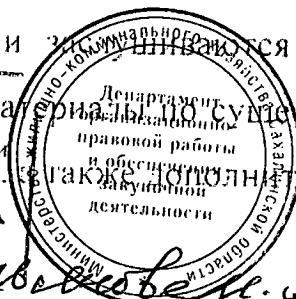 и заслушиваются
материалы по суще
также дополнит
Министерство жилищно-коммунального хозяйства Сахалинской области
Департамент
организационно-
правовой работы
и обеспечения
закупочной
деятельности